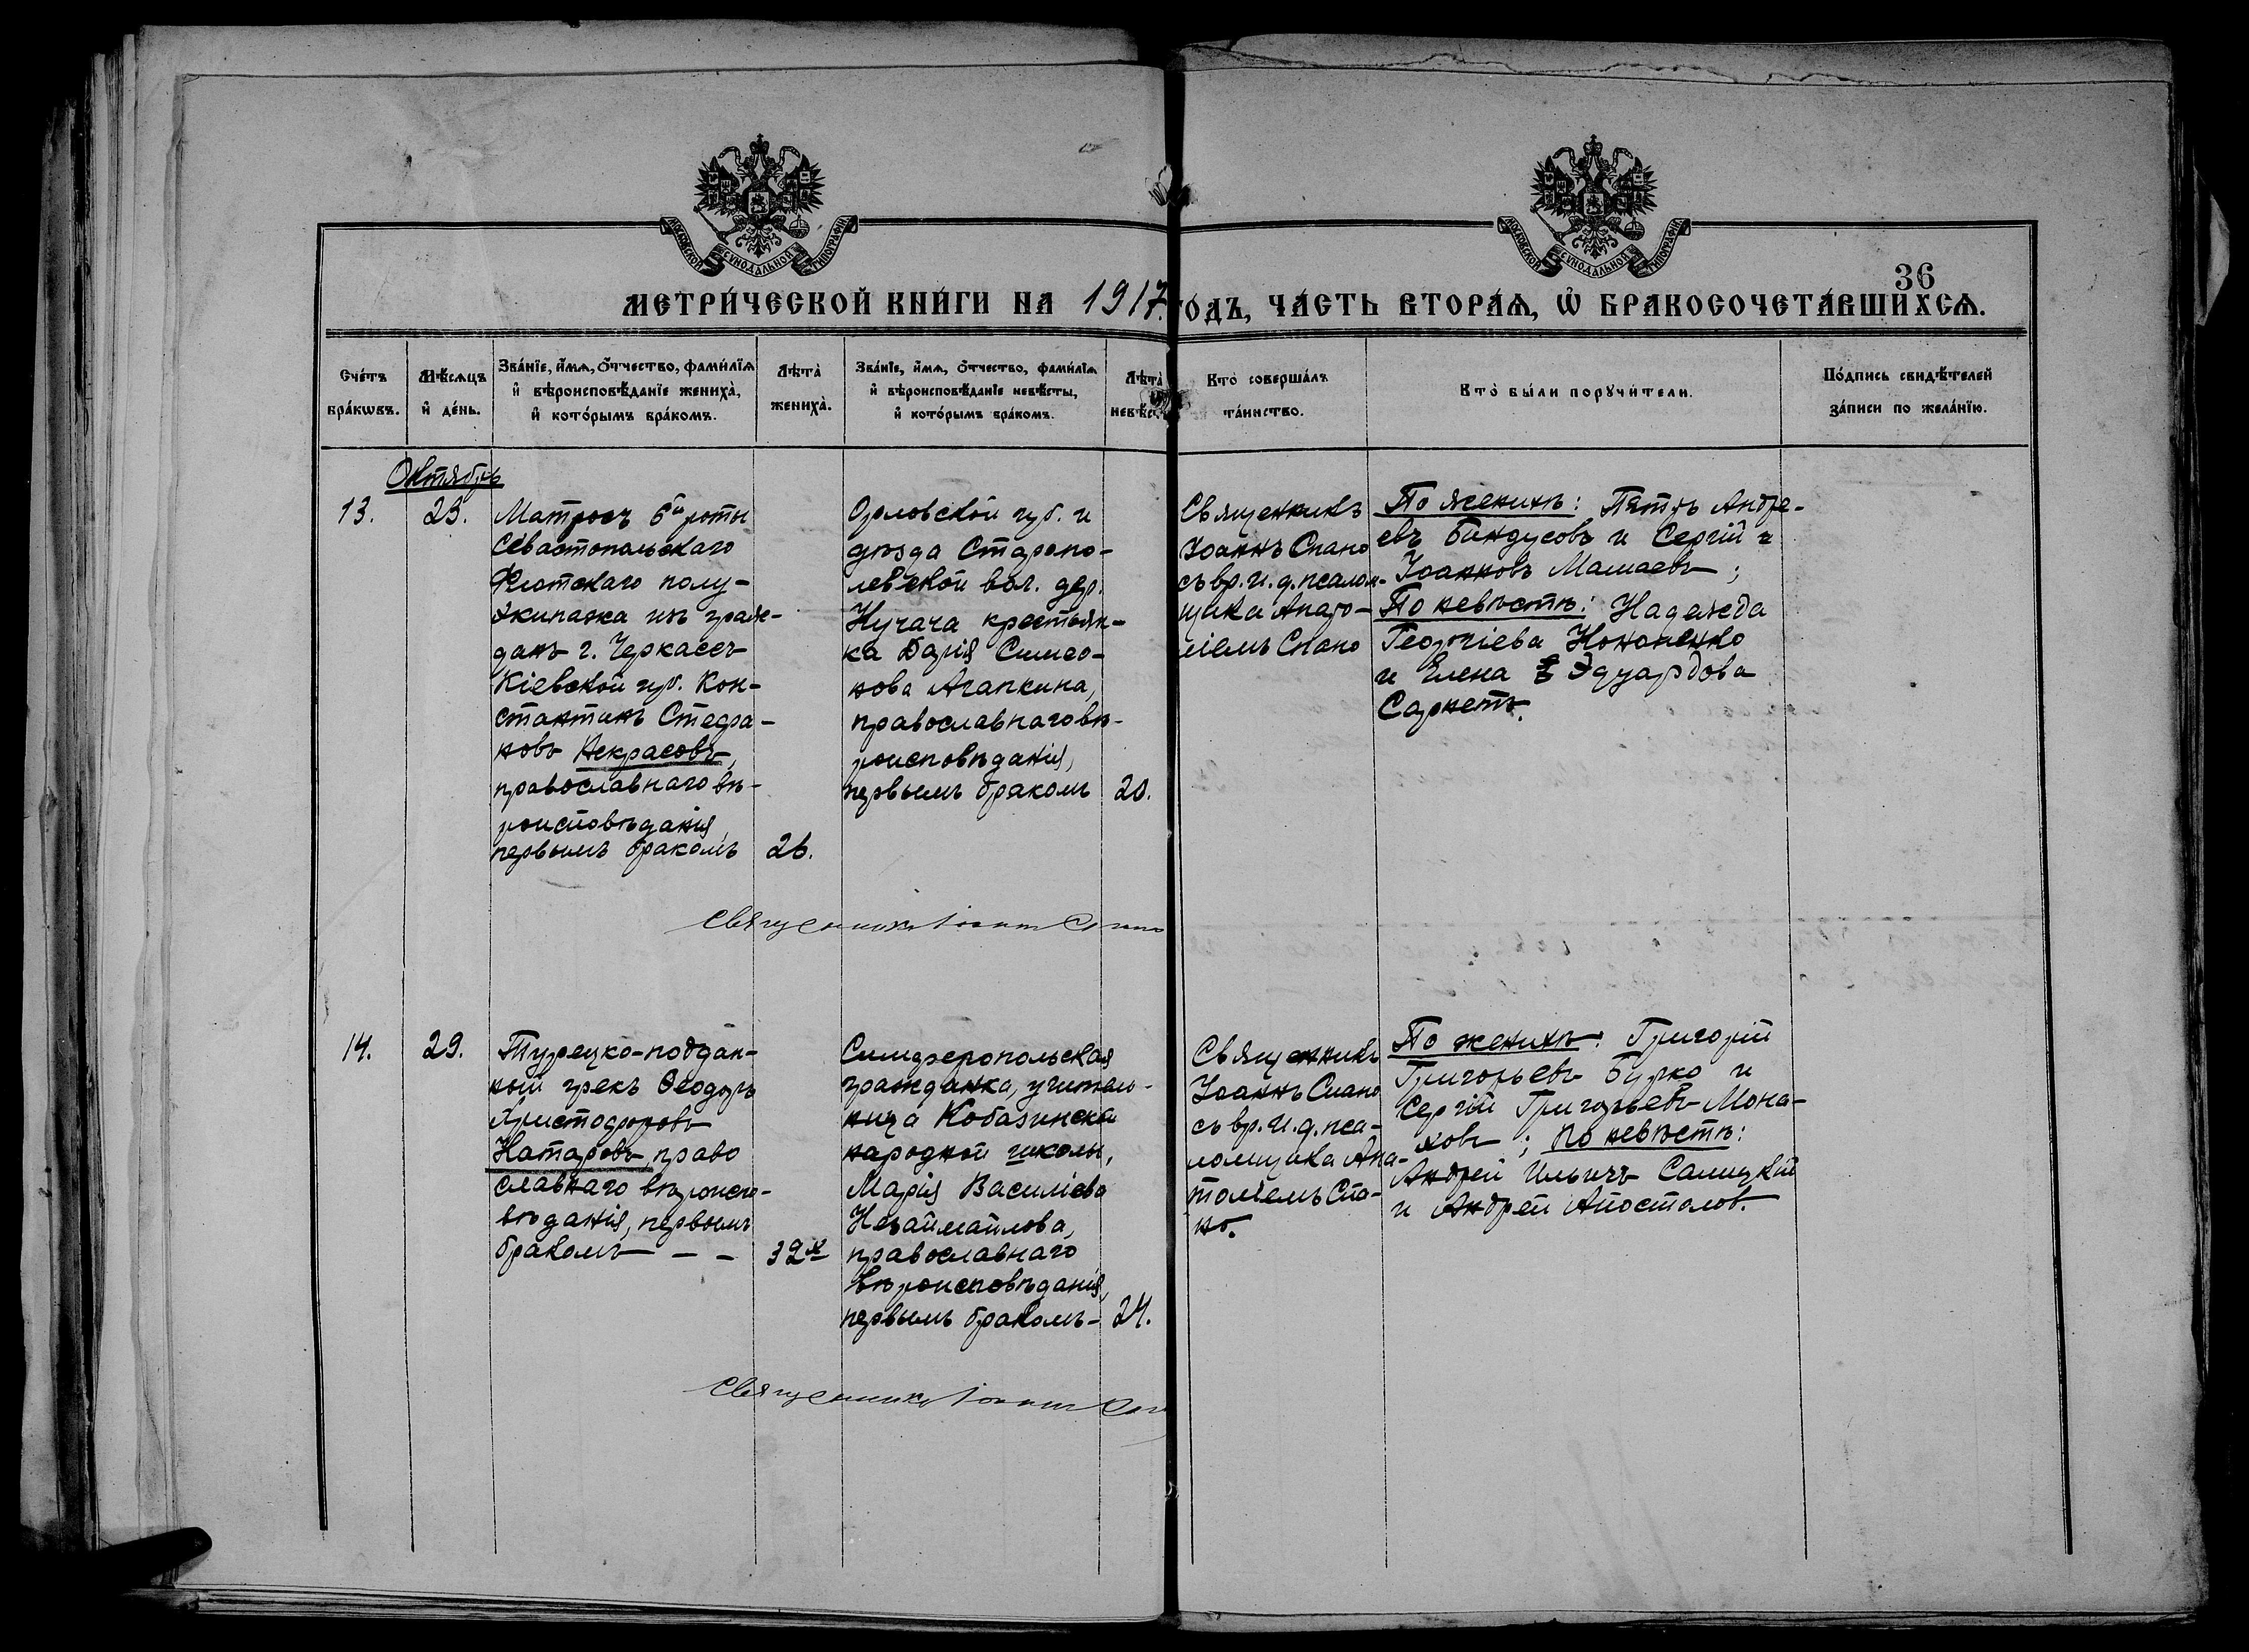 МОСКОВСКОЙ СѴНОДАЛЬНОЙ ТИПОГРАФІИ
МОСКОВСКОЙ СѴНОДАЛЬНОЙ ТИПОГРАФІИ
36
МЕТРИ́ЧЕСКОЙ КНИ́ГИ НА 1917 ГОДЪ, ЧА́СТЬ ВТОРА́Я, Ѡ҆ БРАКОСОЧЕТА́ВШИХСЯ.
Сче́тъ
бра́кѡвъ.
Мѣ́сяцъ
и҆ де́нь.
Зва́нїе, и҆́мя, ѻ҆́тчество, фами́лїя
и҆ вѣроисповѣ́данїе жениха̀,
и҆ кото́рымъ бра́комъ.
Лѣта̀
жениха̀.
Зва́нїе, и҆́мя, ѻ҆́тчество, фами́лїя
и҆ вѣроисповѣ́данїе невѣ́сты,
и҆ кото́рымъ бра́комъ.
Лѣта̀
невѣ́с
Кто̀ соверша́лъ
та́инство.
Кто̀ бы́ли поручи́тели.
По́дпись свидѣ́телей
за́писи по жела́нїю.
Октябрь
13.
23.
Матросъ 6й роты
Севастопольскаго
Флотскаго полу-
экипажа изъ граж-
данъ г. Черкассъ
Кіевской губ. Кон-
стантинъ Стефа-
новъ Некрасовъ,
православнаго вѣ-
роисповѣданія,
первымъ бракомъ
26.
Орловской губ. и
уѣзда Старопо-
левской вол. дер.
Кучача крестьян-
ка Дарія Симео-
нова Агапкина,
православнаго вѣ-
роисповѣданія,
первымъ бракомъ
20.
Священникъ
Іоаннъ Спано
съ вр. и. д. псалом-
щика Анато-
ліемъ Спано
По женихѣ: Петръ Андре-
евъ Бандусовъ и Сергій
Іоанновъ Машаевъ;
По невѣстѣ: Надежда
Георгіева Кононенко
и Елена Эдуардова
Сарнетъ.
Священникъ Іоаннъ Спано
14.
29.
Турецко-поддан-
ный грекъ Ѳеодоръ
Христофоровъ
Натаровъ, право
славнаго вѣроиспо-
вѣданія, первымъ
бракомъ — —
32х
Симферопольская
гражданка, учитель-
ница Кобазинской
народной школы,
Марія Василіева
Незаймайлова,
православнаго
вѣроисповѣданія,
первымъ бракомъ-
24.
Священникъ
Іоаннъ Спано
съ вр. и. д. пса-
ломщика Ана-
толіемъ Спа-
но.
По женихѣ: Григорій
Григорьевъ Бурко и
Сергій Григорьевъ Мона-
ховъ; по невѣстѣ:
Андрей Ильичъ Салицкій
и Андрей Апостолов.
Священникъ Іоаннъ